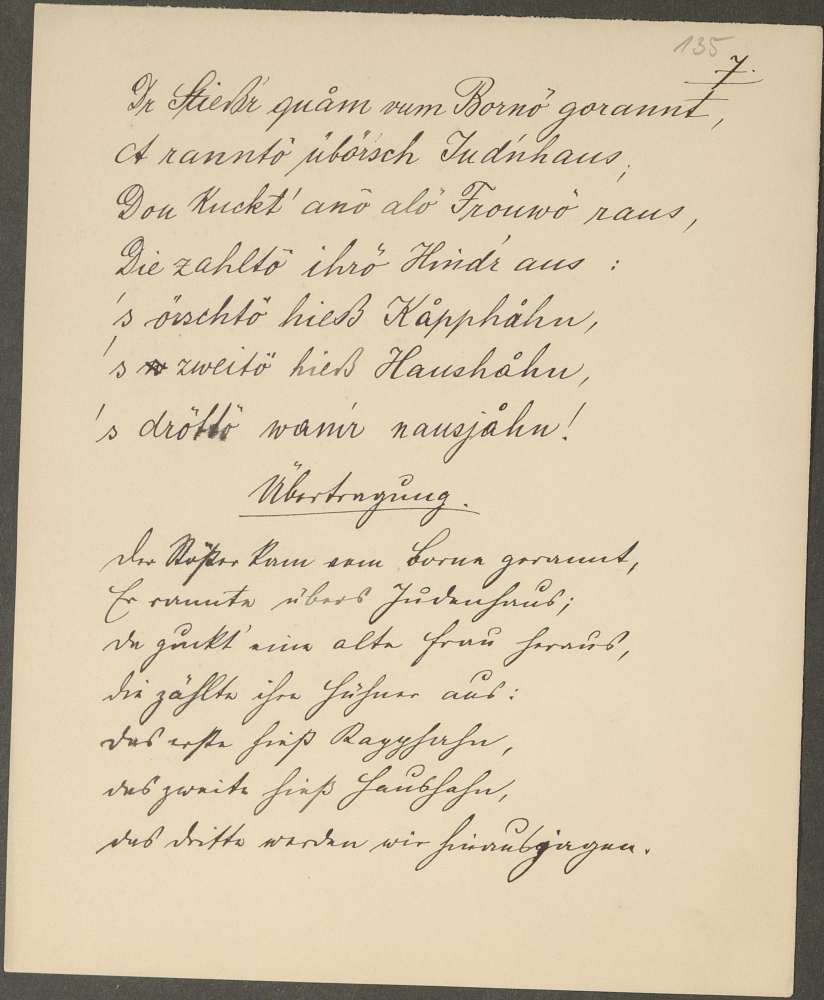 135
7.
Dr Stießr quåm vum Bornö gorannt,
A ranntö übörsch Judnhaus;
Dou kuckt' anö alö Frouwö raus,
Die zahltö ihrö Hindr aus :
's örschtö hieß Kåpphåhn,
's zweitö hieß Haushåhn,
's dröttö wamr nausjåhn!
Übertragung.
Der Stößer kam vom Borne gerannt,
Er rannte übers Judenhaus;
da guckt' eine alte Frau heraus,
die zählte ihre Hühner aus:
das erste hieß Kapphahn,
das zweite hieß Haushahn,
das dritte werden wir hinausjagen.